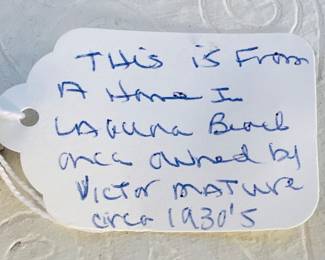 THis is From
A Home In
LAguna Beach
once owned by
Victor MATURE
circa 1930's